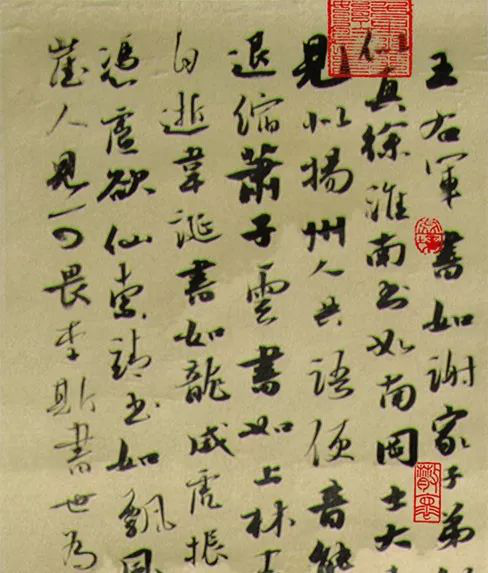 王右軍書如謝家子弟
似真徐淮南书如南岡士大
見似揚州人共語便音
退縮蕭子雲書如上林
自逝韋誕書如龍威虎振
憑虛欲仙索靖书如飄風
崖人見可畏李斯書世為